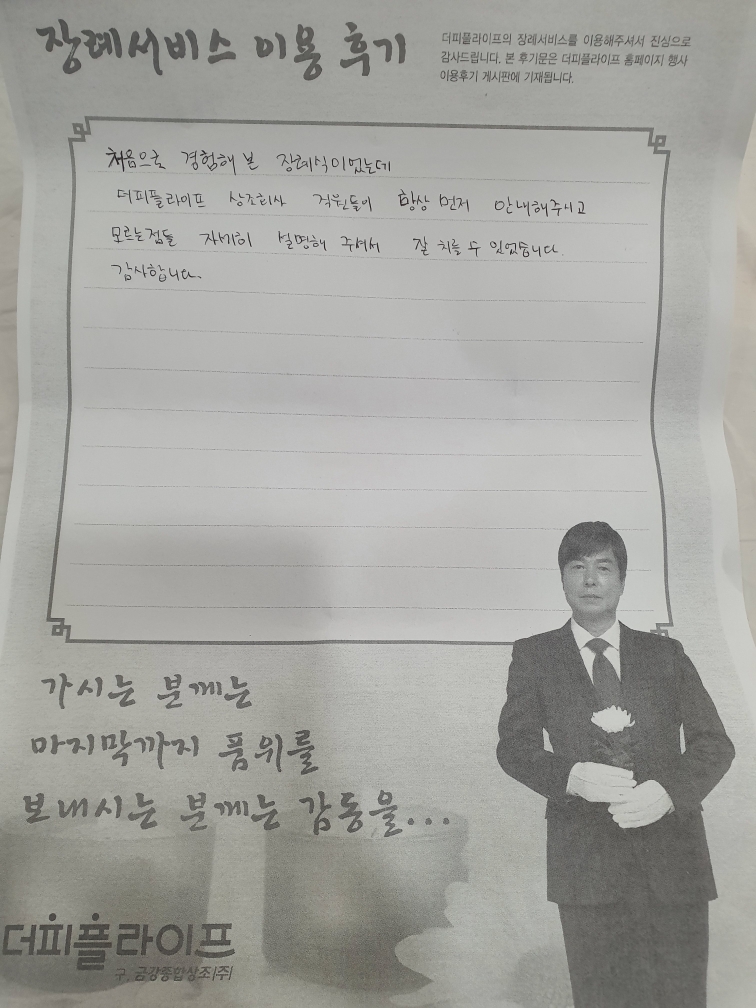 장례서비스 이용 후기
더피플라이프의 장례서비스를 이용해주셔서 진심으로
감사드립니다. 본 후기문은 더피플라이프 홈페이지 행사
이용후기 게시판에 기재됩니다.
처음으로 경험해 본 장례식이었는데
더피플라이프 상조회사 직원들이 항상 먼저 안내해주시고
모르는점들 자세히 설명해 주셔서 잘 치를 수 있었습니다.
감사합니다.
가시는 분께는
마지막까지 품위를
보내시는 분께는 감동을...
더피플라이프
구. 금강종합상조(주)